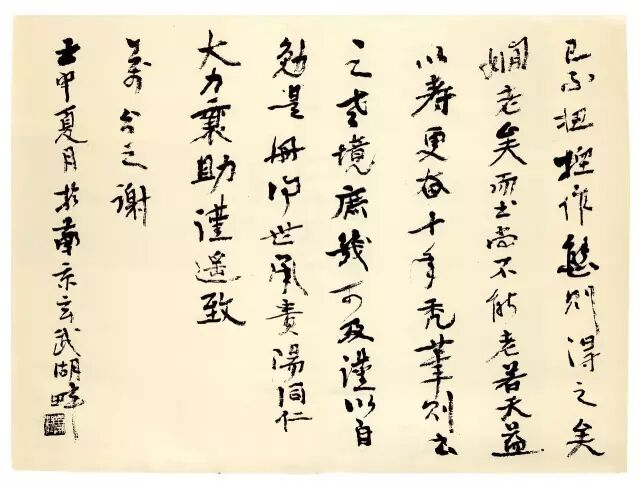 已不扭捏作態則得之矣
嫻老矣而書尚不能老若天益
以壽更奮十年禿筆則書
之老境庶幾可及謹以自
勉是冊印世承貴陽同仁
大力襄助謹遙致
之謝
壬申夏月於南京玄武湖畔